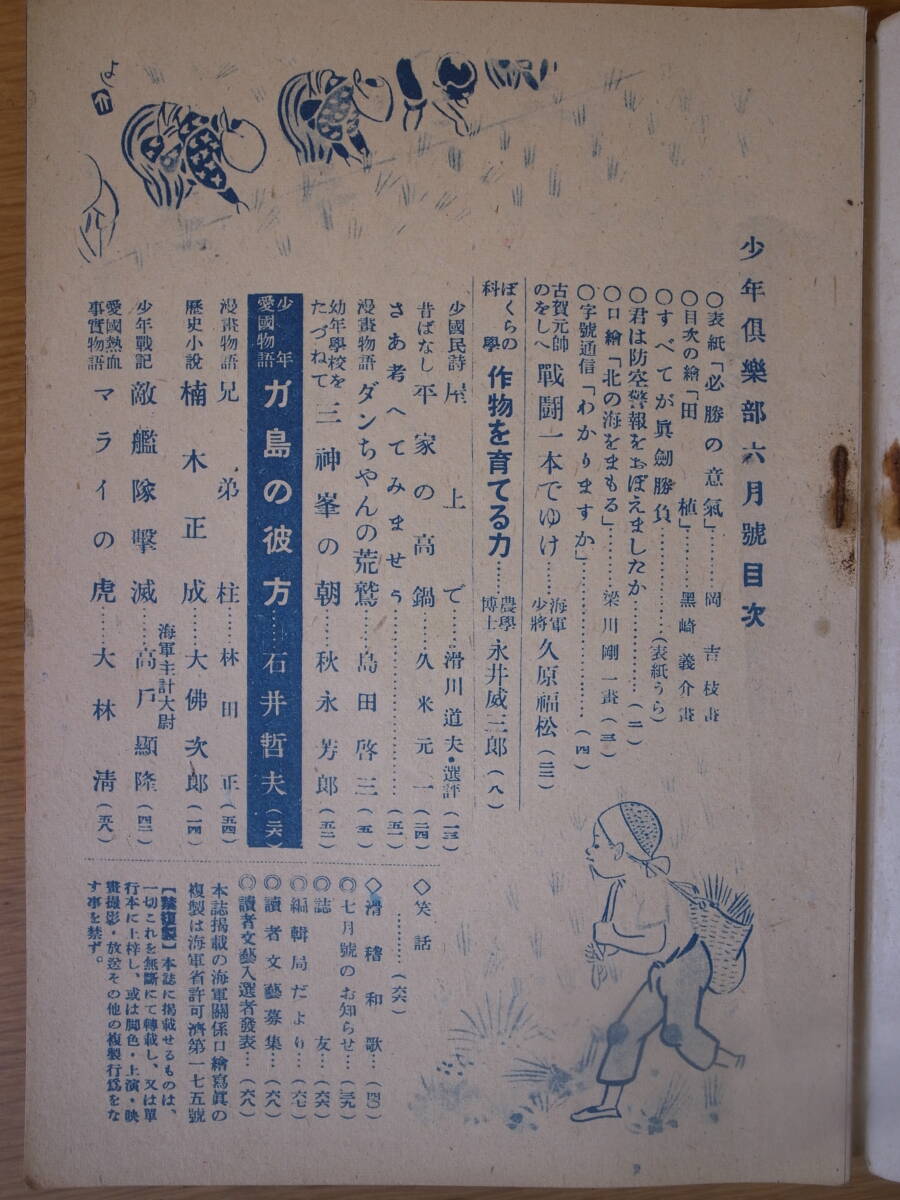 少年倶樂部六月號目次
○表紙「必勝の意氣」……岡吉枝畫
○目次の繪「田植」……黑崎義介畫
○すべてが眞劍勝負……(表紙うら)
○君は防空警報をおぼえましたか……(二)
○口繪「北の海をまもる」……梁川剛一畫(三)
○字號通信「わかりますか」……(四)
古賀元帥のをしへ 戰鬪一本でゆけ……海軍少將 久原福松(三三)
ぼくらの科學 作物を育てる力……農學博士 永井威三郎(八)
少國民詩 屋上で……滑川道夫・選評(一三)
昔ばなし 平家の高鍋……久米元一(二四)
さあ考へてみませう……(五一)
漫畫物語 ダンちやんの荒鷲……島田啓三(五)
幼年學校をたづねて 三神峯の朝……秋永芳郎(五二)
少年愛國物語 ガ島の彼方……石井哲夫(二六)
漫畫物語 兄弟柱……林田正(五四)
歷史小說 楠木正成……大佛次郎(一四)
少年戰記 敵艦隊擊滅……海軍主計大尉 高戶顯隆(四二)
愛國熱血事實物語 マライの虎……大林淸(五八)
◇笑話……(六六)
◇滑稽和歌…(四〇)
◎七月號のお知らせ…(三九)
◎誌友…(六六)
◎編輯局だより…(六七)
◎讀者文藝募集…(六八)
◎讀者文藝入選者發表…(六八)
本誌揭載の海軍關係口繪寫眞の
複製は海軍省許可濟第一七五號
【禁複製】本誌に揭載せるものは、
一切これを無斷にて轉載し、又は單
行本に上梓し、或は脚色・上演・映
畫撮影・放送その他の複製行爲をな
す事を禁ず。